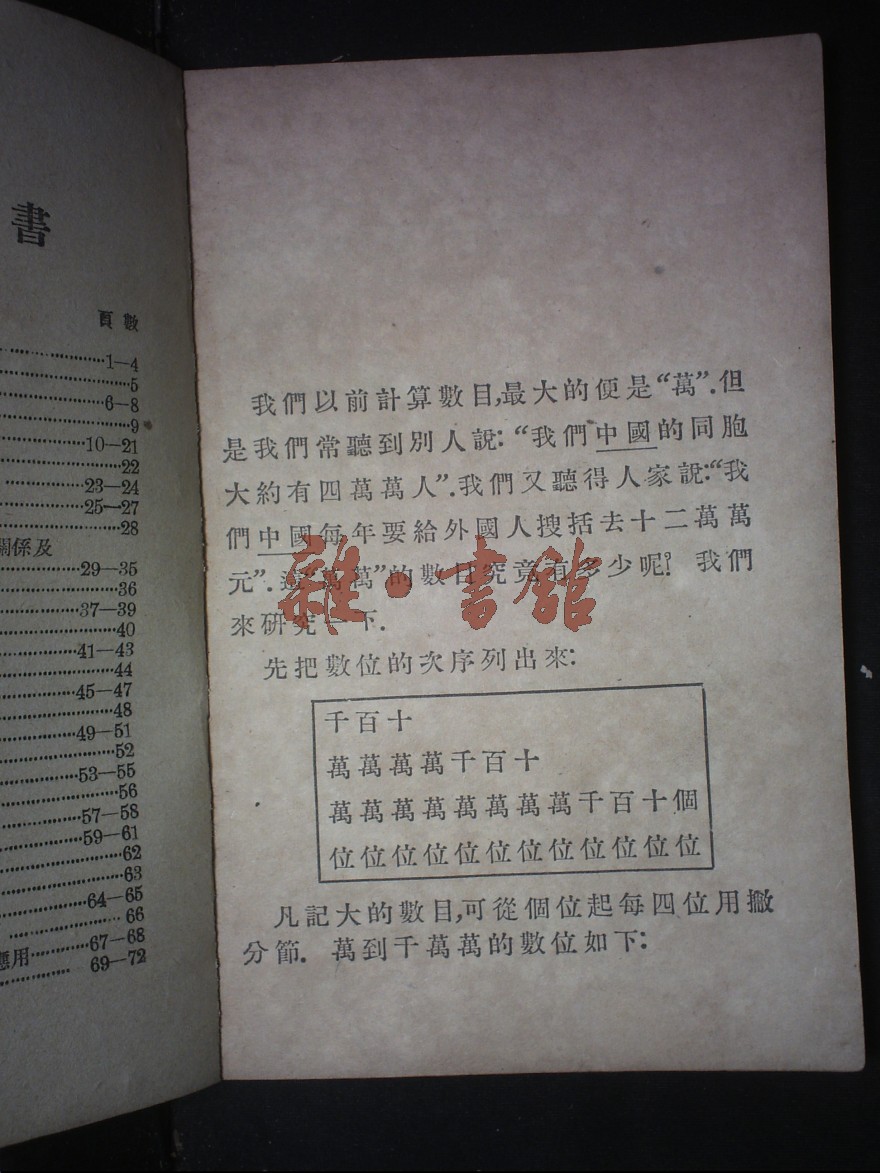 書
頁數
1—4
5
6—8
9
10—21
22
23—24
25—27
28
關係及
29—35
36
37—39
40
41—43
44
45—47
48
49—51
52
53—55
56
57—58
59—61
62
63
64—65
66
應用 67—68
69—72
我們以前計算數目,最大的便是“萬”.但
是我們常聽到別人說:“我們中國的同胞
大約有四萬萬人”.我們又聽得人家說:“我
們中國每年要給外國人搜括去十二萬萬
元”.這“萬萬”的數目究竟有多少呢? 我們
來研究一下.
雜·書館
先把數位的次序列出來:
千百十
萬萬萬萬千百十
萬萬萬萬萬萬萬萬千百十個
位位位位位位位位位位位位
凡記大的數目,可從個位起每四位用撇
分節. 萬到千萬萬的數位如下: